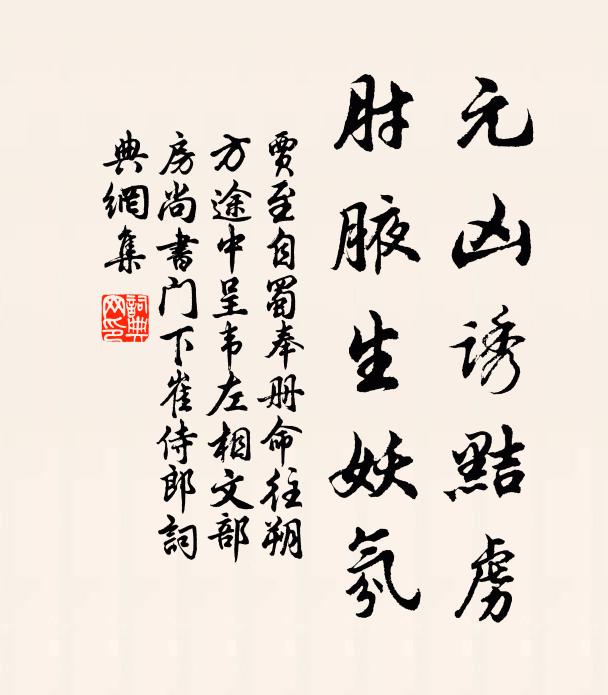 元凶诱黠虏
肘腋生妖氛
贾至自蜀奉册命往朔
方途中呈韦左相文部
房尚书门下崔侍郎詞
典網集
詞典
网印